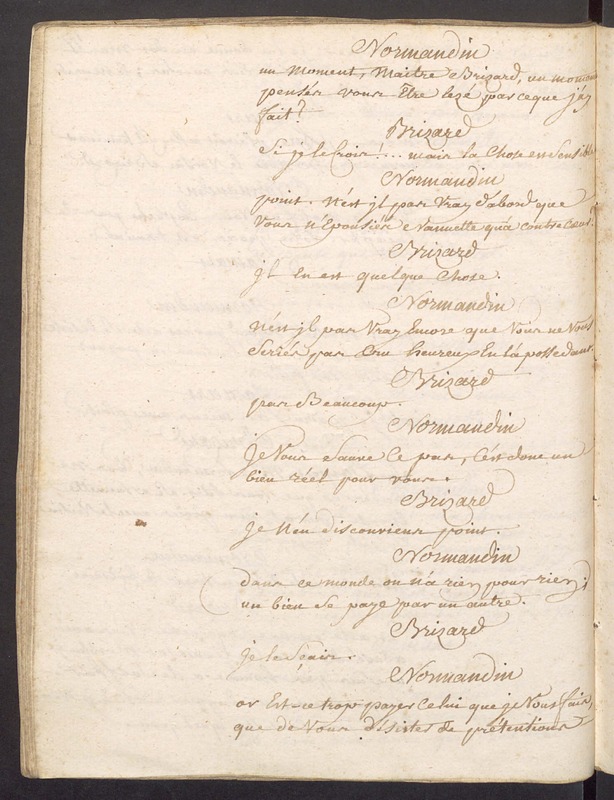 Normandin
un moment, Maitre Brizard, un moment
pensés vous Être lezé par ce que j'ay
fait?
Brizard
Si je le Crois!... mais la Chose est Sensible
Normandin
point. n'est jl pas Vray d'abord que
Vous n'Epousiés Nannette qu'à contre Coeur.
Brizard
jl En est quelque Chose.
Normandin
n'est jl pas Vray Encore que Vous ne Vous
Seriés pas Cru heureux En la possedant.
Brizard
pas Beaucoup.
Normandin
je Vous Sauve Ce pas, C'est donc un
bien réel pour vous.
Brizard
je n'en disconviens point.
Normandin
dans ce monde on n'a rien pour rien;
un bien Se paye par un autre.
Brizard
je le Scais.
Normandin
or Est-ce trop payer Celui que je Vous fais,
que de Vous désister de prétentions